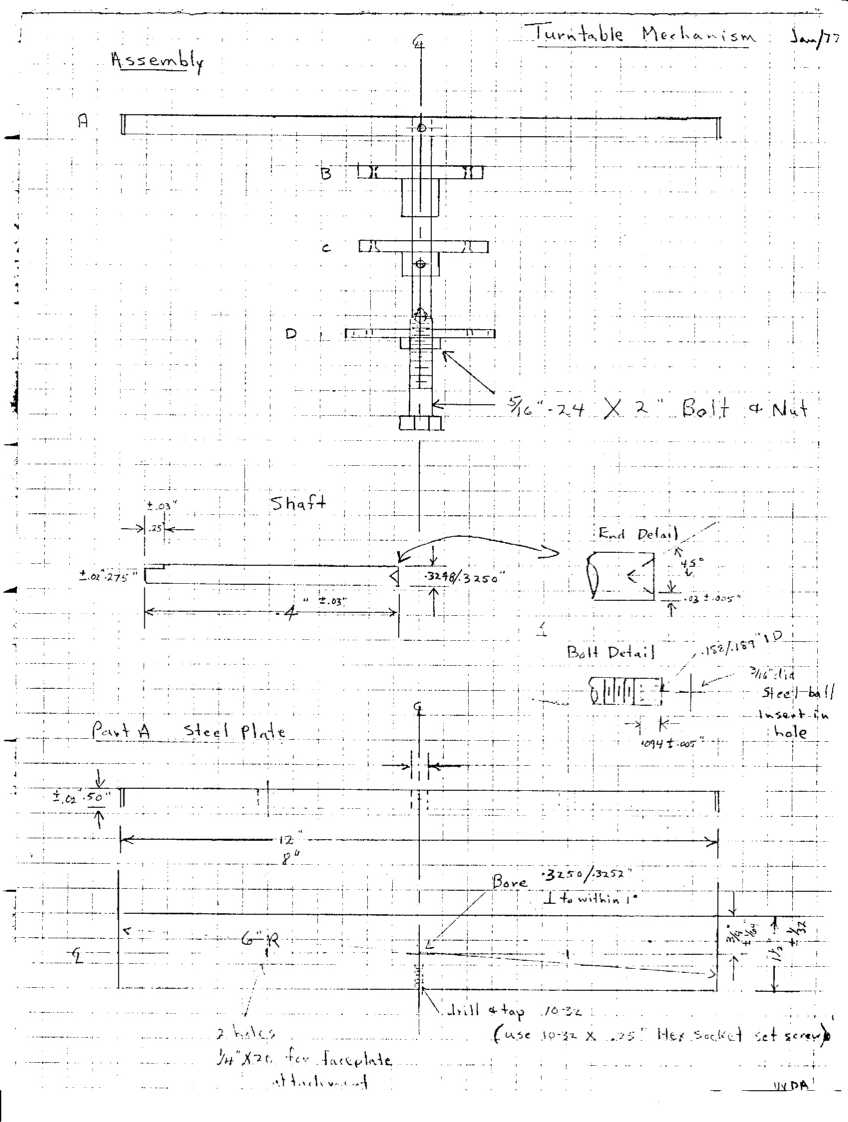 Turntable Mechanism Jan/77
Assembly
℄
A
B
C
D
5/16"-24 X 2" Bolt & Nut
Shaft
±.03"
.25"
±.02" .275"
.3248/.3250"
4" ±.03"
End Detail
45°
.03 ±.005"
Bolt Detail
3/16" dia
Steel ball
Insert in
hole
.094 ±.005"
℄
Part A Steel Plate
±.02" .50"
12"
8"
Bore .3250/.3252"
⊥ to within 1°
℄
6" R
3/4" ± 1/64
1 1/2" ± 1/32
drill & tap 10-32
(use 10-32 X .25" Hex socket set screw)
2 holes
1/4" X 20 for faceplate
attachment